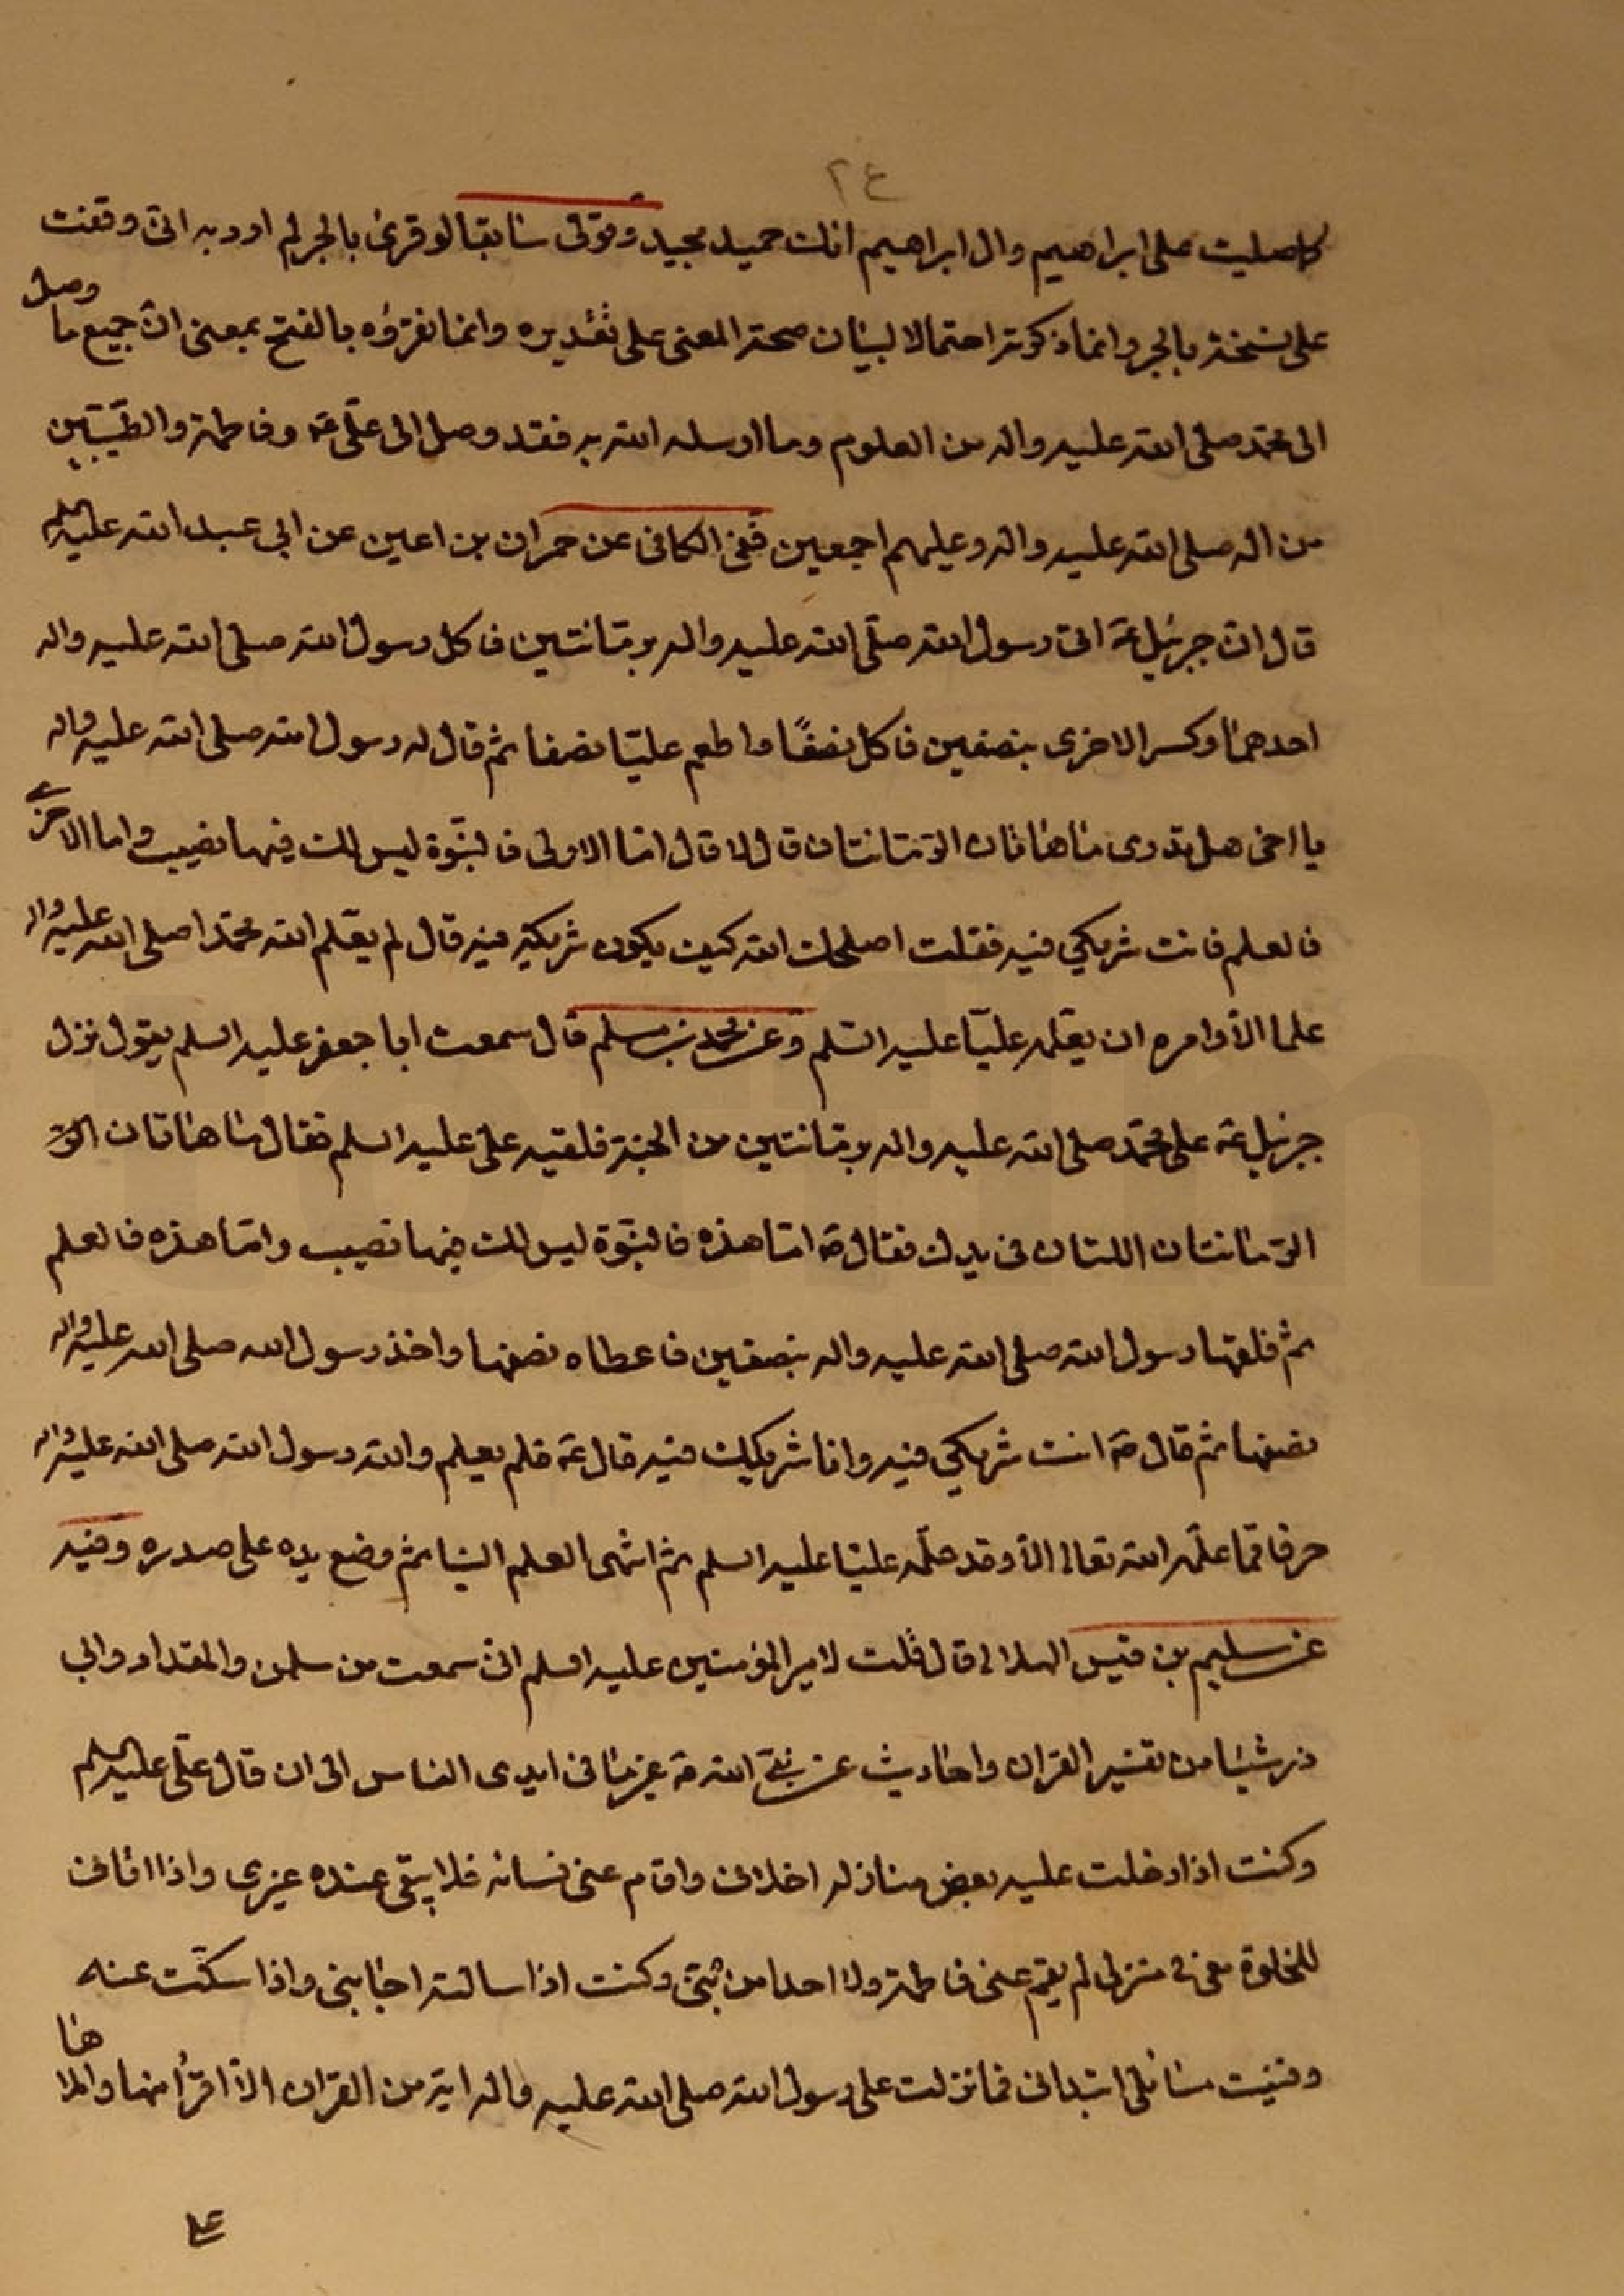 ٢٤
كما صليت على ابراهيم وال ابراهيم انك حميد مجيد وقولى سابقا لو قرئ بالجر لم ارد به انى وقفت
على نسخة بالجر وانما ذكرته احتمالا لبيان صحة المعنى على تقديره وانما نقرؤه بالفتح بمعنى ان جميع ما وصل
الى محمد صلى الله عليه واله من العلوم وما ارسله الله به فقد وصل الى على ع وفاطمة والطيبين
من اله صلى الله عليه واله وعليهم اجمعين ففى الكافى عن حمران بن اعين عن ابى عبد الله عليه السلم
قال ان جبرئيل ع اتى رسول الله صلى الله عليه واله برمانتين فاكل رسول الله صلى الله عليه واله
احدهما وكسر الاخرى بنصفين فاكل نصفًا واطعم عليّا نصفا ثم قال له رسول الله صلى الله عليه واله
يا اخى هل تدرى ما هاتان الرمانتان قال لا قال اما الاولى فالنبوة ليس لك فيها نصيب واما الاخرى
فالعلم فانت شريكي فيه فقلت اصلحك الله كيف يكون شريكه فيه قال لم يعلم الله محمدا صلى الله عليه واله
علما الا وامره ان يعلمه عليّا عليه السلم وعن محمد بن مسلم قال سمعت ابا جعفر عليه السلم يقول نزل
جبرئيل ع على محمد صلى الله عليه واله برمانتين من الجنة فلقيه على عليه السلم فقال ما هاتان
الرمانتان اللتان فى يدك فقال ص اما هذه فالنبوة ليس لك فيها نصيب واما هذه فالعلم
ثم فلقها رسول الله صلى الله عليه واله بنصفين فاعطاه نصفها واخذ رسول الله صلى الله عليه واله
نصفها ثم قال ص انت شريكي فيه وانا شريكك فيه قال ع فلم يعلم والله رسول الله صلى الله عليه واله
حرفا مما علمه الله تعالى الا وقد علمه عليّا عليه السلم ثم انتهى العلم الينا ثم وضع يده على صدره وفيه
عن سليم بن قيس الهلالى قال قلت لامير المؤمنين عليه السلم انى سمعت من سلمن والمقداد وابى
ذر شيئا من تفسير القران واحاديث عن نبى الله ص غير ما فى ايدى الناس الى ان قال على عليه السلم
وكنت اذا دخلت عليه بعض منازله اخلانى واقام عنى نسائه فلا يبقى عنده غيرى واذا اتانى
للخلوة معى فى منزلى لم يقم عنى فاطمة ولا احدا من بنى وكنت اذا سالته اجابنى واذا سكت عنه
وفنيت مسائلى ابتدانى فما نزلت على رسول الله صلى الله عليه واله اية من القران الا اقرأنيها واملاها
على